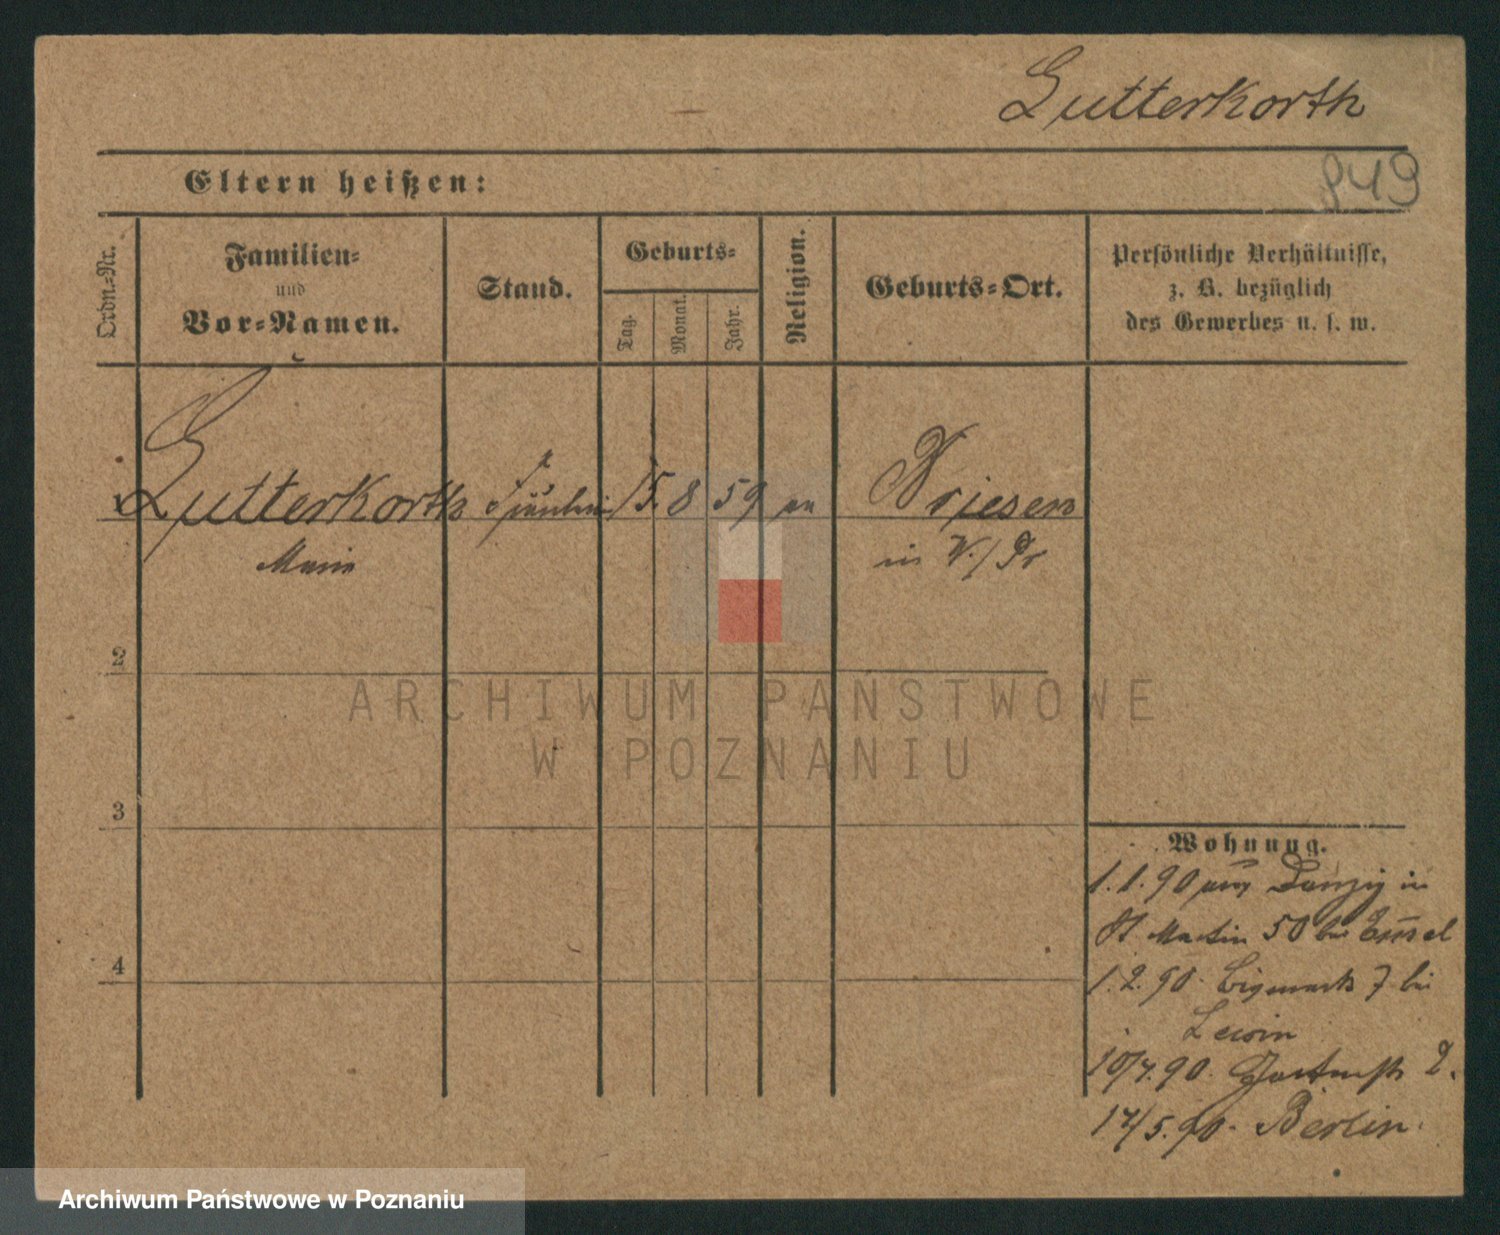 Lutterkorth
849
Eltern heißen:
Ordn.-Nr.
Familien-
und
Vor-Namen.
Stand.
Geburts-
Tag.
Monat.
Jahr.
Religion.
Geburts-Ort.
Persönliche Verhältnisse,
z. B. bezüglich
des Gewerbes u. s. w.
1 Lutterkorth Fräulein 15. 8 59 Briesen
Marie in W./Pr
2
ARCHIWUM PAŃSTWOWE
W POZNANIU
3
Wohnung.
1.1.90 aus Danzig in
St. Martin 50 bei
4
1.2.90. Bismarck 7 bei
Lewin
10/4.90. 2.
17/5.90. Berlin.
Archiwum Państwowe w Poznaniu